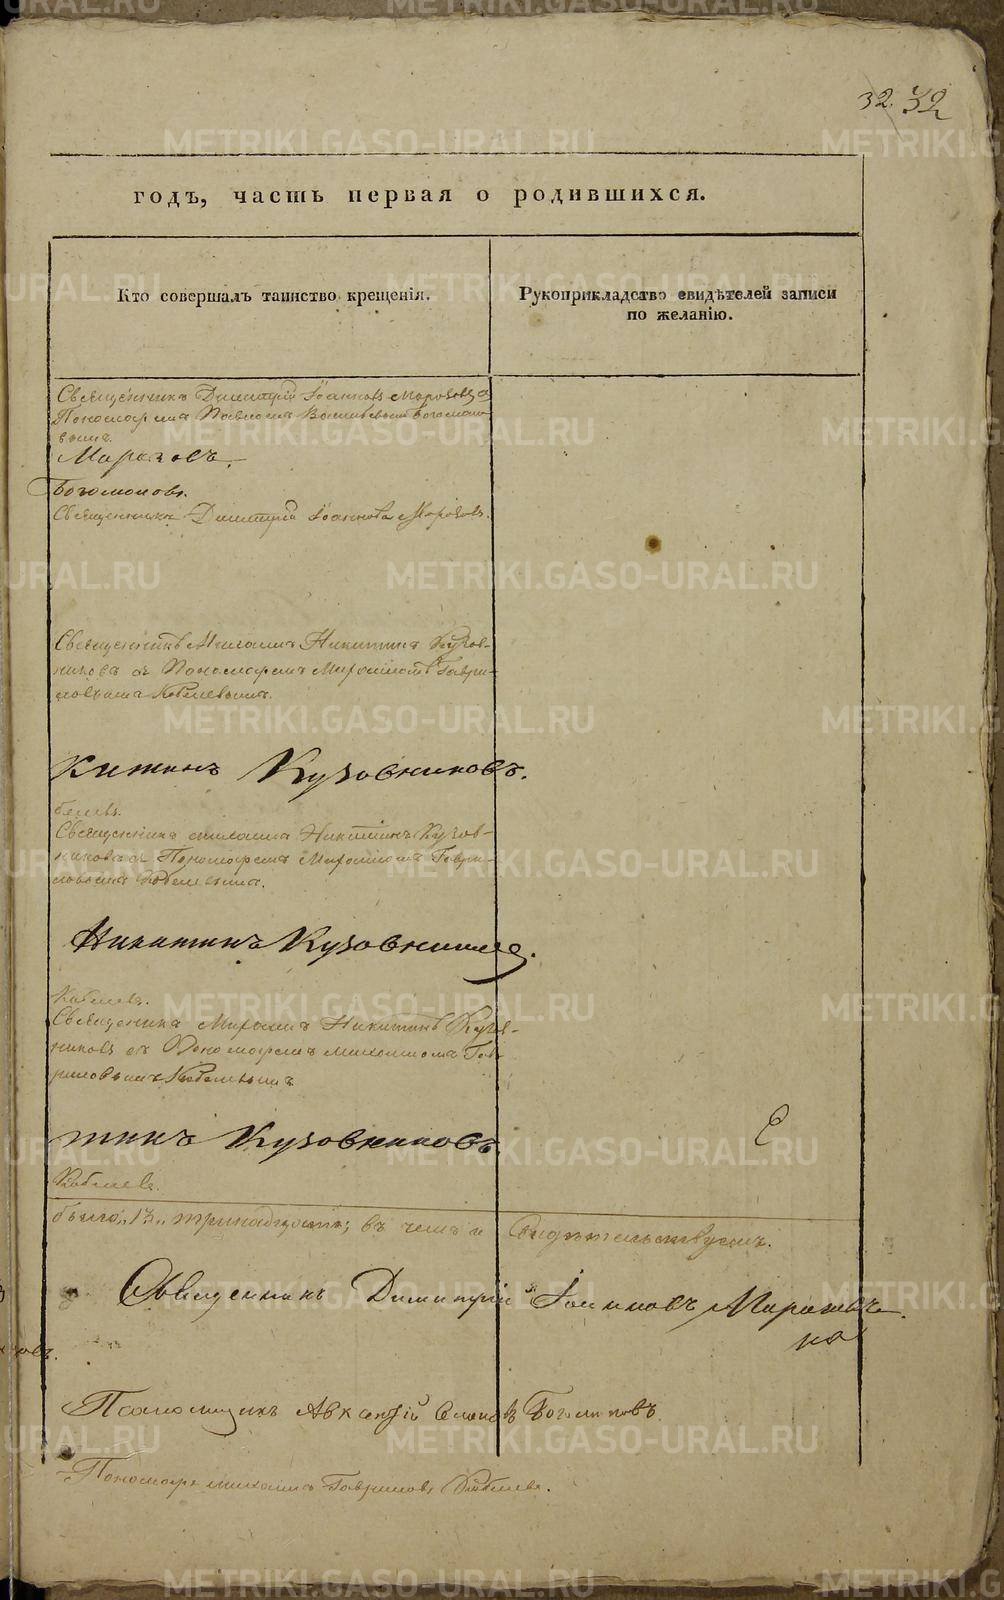 32. 32
годъ, часть первая о родившихся.
Кто совершалъ таинство крещенія.
Рукоприкладство свидѣтелей записи
по желанію.
Священникъ Димитрій Іоанновъ Морозовъ съ
Пономаремъ Павломъ Богомоло-
вымъ.
Марозовъ.
Богомоловъ.
Священникъ Димитрій Іоанновъ Морозовъ.
Священникъ Никитинъ Кузов-
никовъ съ Пономаремъ Гаври-
ловымъ Кобелевымъ.
Китинъ Кузовниковъ.
белевъ.
Священникъ Никитинъ Кузов-
никовъ съ Пономаремъ Гаври-
ловымъ Кобелевымъ.
Никитинъ Кузовников.
Кобелевъ.
Священникъ Никитинъ Кузов-
никовъ съ Пономаремъ Гав-
риловымъ Кобелевымъ
тинъ Кузовниковъ.
Кобелевъ.
было „13„ тринадцать; въ чемъ и свидѣтельствуемъ.
Священникъ Димитрій Іоанновъ Марозовъ.
Авксентій Богомоловъ
Пономарь Гавриловъ Кобелевъ.
METRIKI.GASO-URAL.RU